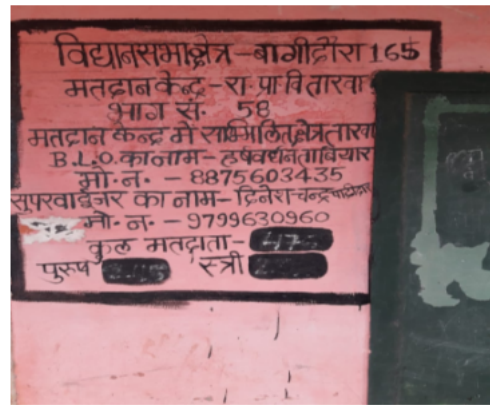 विधानसभा क्षेत्र - बागीदौरा 165
मतदान केन्द्र - रा. प्रा. वि तारवा
भाग सं. 58
मतदान केन्द्र में सम्मिलित क्षेत्र तारवा
B.L.O. का नाम - हर्षवर्धन ताबियार
मो. न. - 8875603435
सुपरवाईजर का नाम - दिनेश चन्द्र
मो. न. - 9799630960
कुल मतदाता -
पुरुष स्त्री